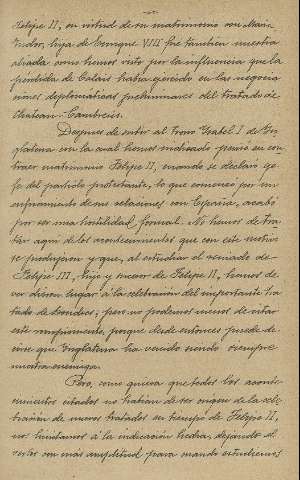 Felipe II, en virtud de su matrimonio con María
Tudor, hija de Enrique VIII fue tambien nuestra
aliada como hemos visto por la influencia que la
pérdida de Calais habia ejercido en las negocia
ciones diplomáticas preliminares del tratado de
Chateau-Cambresis.
Despues de subir al trono Ysabel I de In
glaterra con la cual hemos indicado pensó en con
traer matrimonio Felipe II, cuando se declaró ge
fe del partido protestante, lo que comenzó por un
enfriamiento de sus relaciones con España, acabó
por ser una hostilidad formal. No hemos de tra
tar aqui de los acontecimientos que con este motivo
se produjeron y que, al estudiar el reinado de
Felipe III, hijo y sucesor de Felipe II, hemos de
ver dieron lugar á la celebración del importante tra
tado de Londres; pero no podemos menos de citar
este rompimiento, porque desde entonces puede de
cirse que Inglaterra ha venido siendo siempre
nuestra enemiga.
Pero, como quiera que todos los aconte
cimientos citados no habian de ser origen de la cele
bración de nuevos tratados en tiempo de Felipe II,
nos limitamos á la indicación hecha, dejando el
verlos con más amplitud para cuando estudiemos